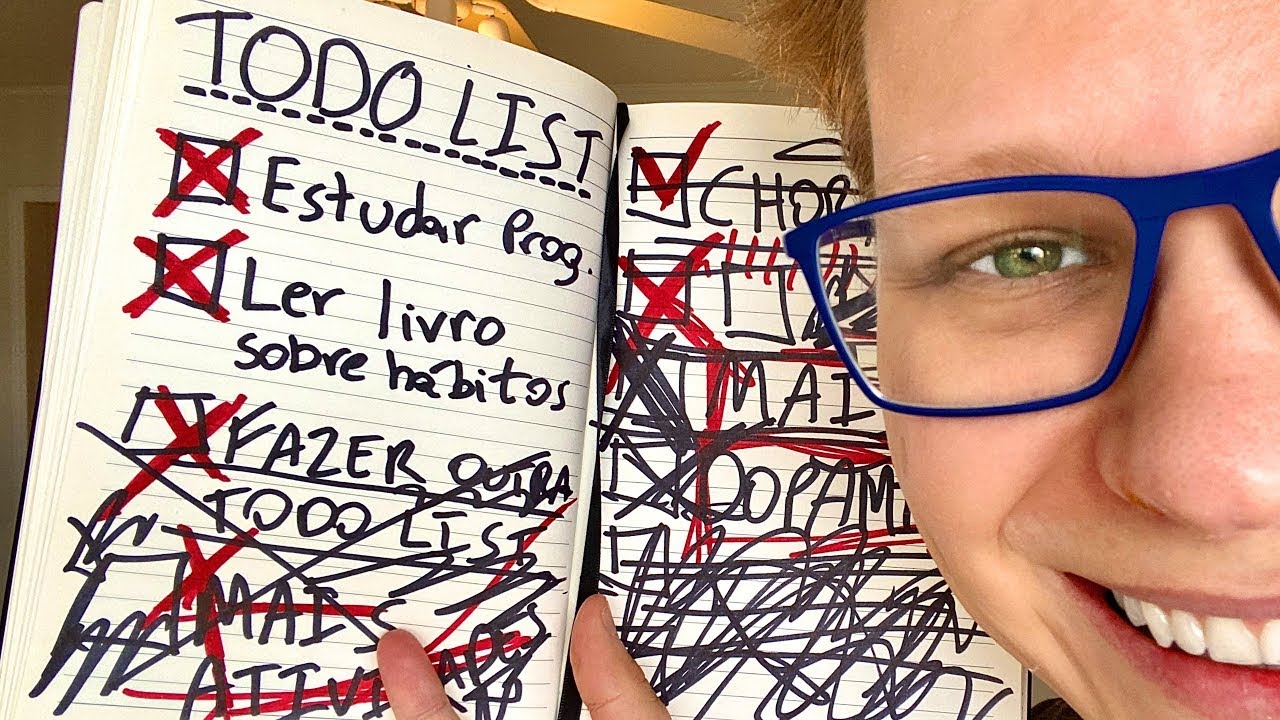 TODO LIST
Estudar Prog.
Ler livro
sobre habitos
FAZER OUTRA
TODO LIST
MAIS
ATIVIDADES
CHOR
MAI
DOPAM